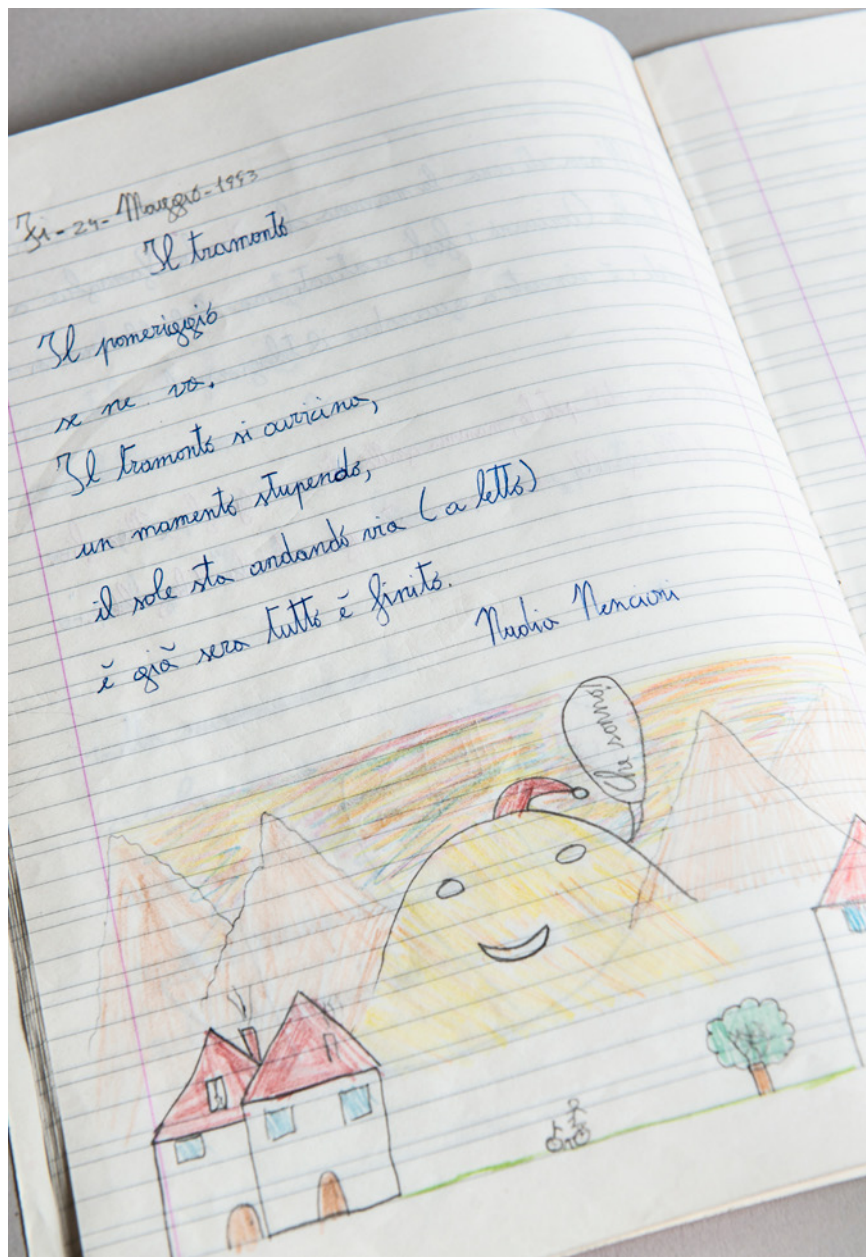 Fi-24-Maggio-1993
Il tramonto
Il pomeriggio
se ne va.
Il tramonto si avvicina,
un mamento stupendo,
il sole sta andando via (a letto)
è già sera tutto è finito.
Nadia Nencioni
Che sonno